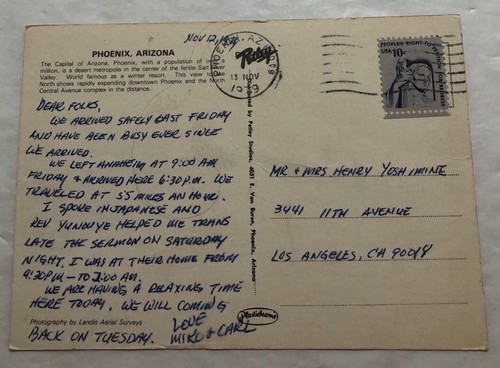 NOV 12, 1979
PHOENIX, ARIZONA
The Capital of Arizona, Phoenix, with a population of over
million, is a desert metropolis in the center of the fertile Salt
Valley. World famous as a winter resort. This view
North shows rapidly expanding downtown Phoenix and the
Central Avenue complex in the distance.
DEAR FOLKS,
WE ARRIVED SAFELY LAST FRIDAY
AND HAVE BEEN BUSY EVER SINCE
WE ARRIVED.
WE LEFT ANAHEIM AT 9:00 AM
FRIDAY & ARRIVED HERE 6:30 P.M. WE
TRAVELED AT 55 MILES AN HOUR.
I SPOKE IN JAPANESE AND
REV HELPED ME TRANS
LATE THE SERMON ON SATURDAY
NIGHT. I WAS AT THEIR HOME FROM
9:30 P.M - TO AM.
WE ARE HAVING A RELAXING TIME
HERE TODAY. WE WILL COMING
BACK ON TUESDAY.
LOVE
MIKO & CARL
Photography by Landis Aerial Surveys
Petley
PHOENIX, AZ
13 NOV
1979
Distributed by Petley Studios, 4051 E. Van Buren, Phoenix, Arizona
Plastichrome
PEOPLE'S RIGHT TO PETITION FOR REDRESS
USA 10c
MR & MRS HENRY YOSHIMINE
3441 11TH AVENUE
LOS ANGELES, CA 90018